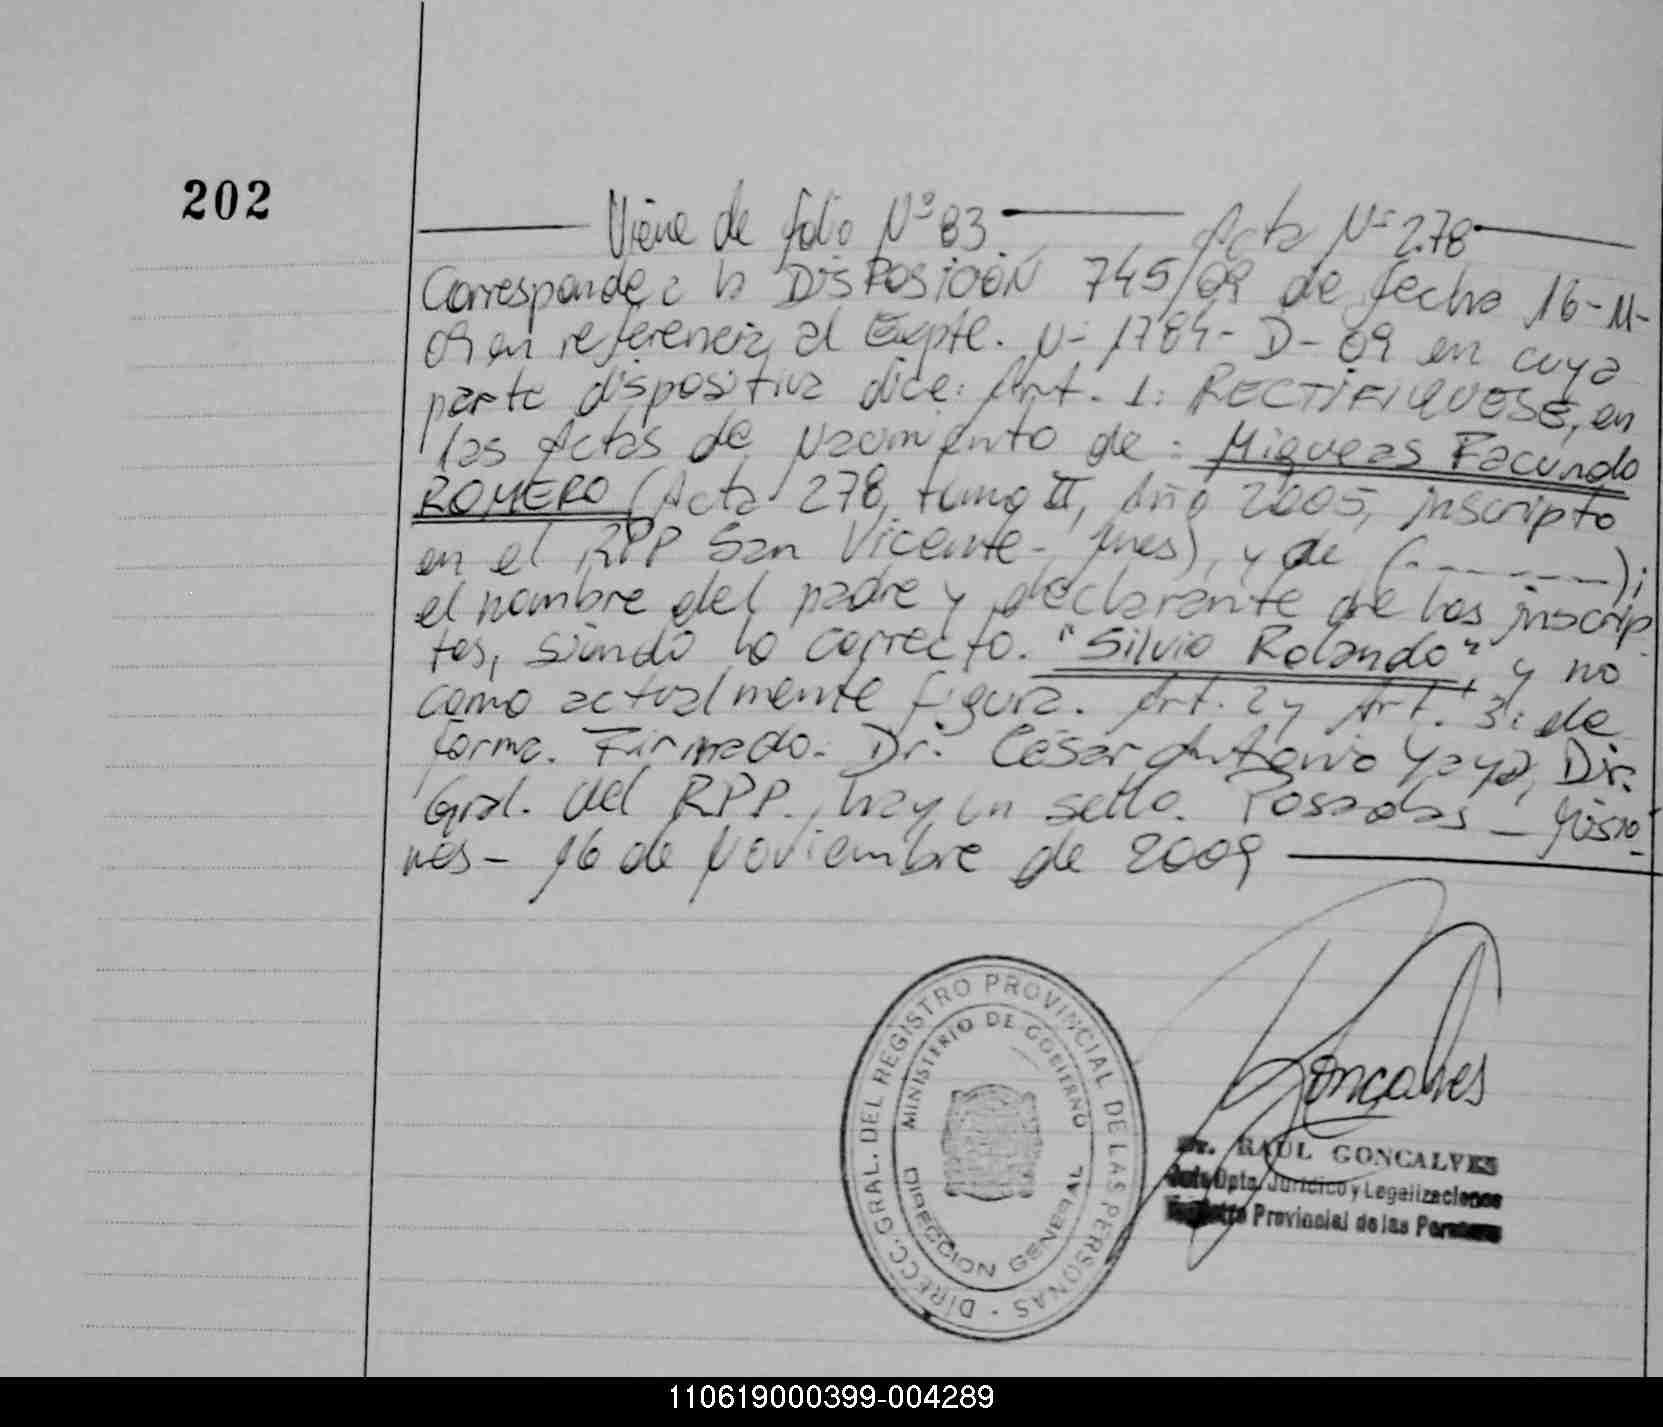 202
Viene de folio Nº 83 Acta Nº 278
Corresponde a la DISPOSICIÓN 745/09 de fecha 16-11-
09 en referencia al Expte. Nº 1784-D-09 en cuya
parte dispositiva dice: Art. 1: RECTIFIQUESE, en
las Actas de Nacimiento de: Miqueas Facundo
ROMERO (Acta 278, tomo II, Año 2005, inscripto
en el RPP San Vicente- Mnes), y de (- - - - - - -);
el nombre del padre y declarante de los inscrip
tos, siendo lo correcto. "Silvio Rolando", y no
como actualmente figura. Art. 2 y Art. 3: de
forma. Firmado. Dr. César Antonio Yaya, Dir.
Gral. del RPP., hay un sello. Posadas - Misio
nes - 16 de Noviembre de 2009
Goncalves
DIRECC. GRAL. DEL REGISTRO PROVINCIAL DE LAS PERSONAS
MINISTERIO DE GOBIERNO
DIRECCION GENERAL
Dr. RAUL GONCALVES
Jefe Dpto. Jurídico y Legalizaciones
Registro Provincial de las Personas
110619000399-004289